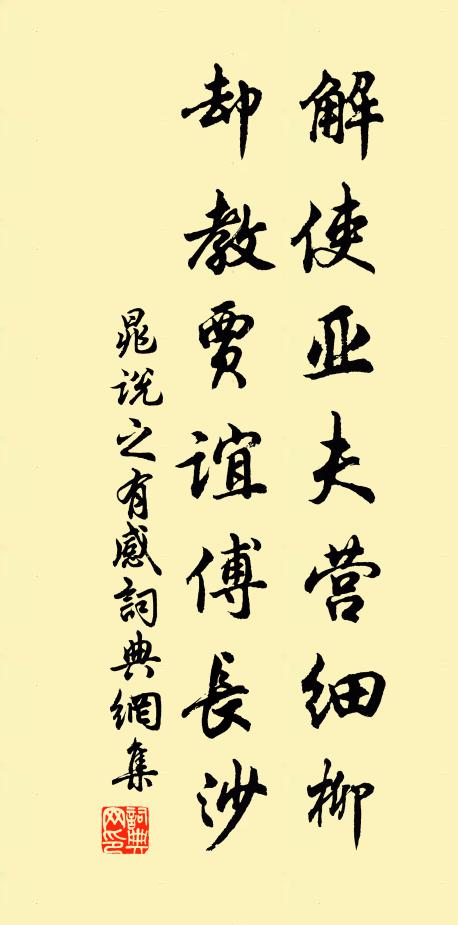 解使亚夫营细柳
却教贾谊傅長沙
晁说之有感詞典網集
詞典網印